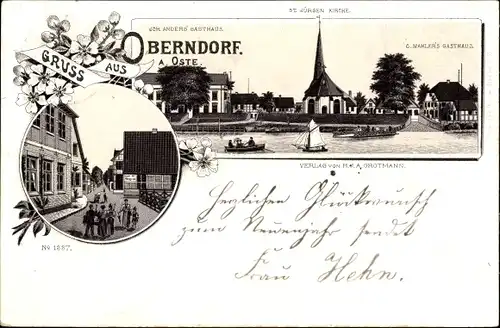 ST. JÜRGEN KIRCHE.
JOH. ANDERS' GASTHAUS.
C. MAHLER'S GASTHAUS.
GRUSS AUS
OBERNDORF.
A. OSTE.
VERLAG von H. & A. GROTMANN.
Herzlichen Glückwunsch
zum Neuenjahr sendet
Frau Hehn.
No 1887.